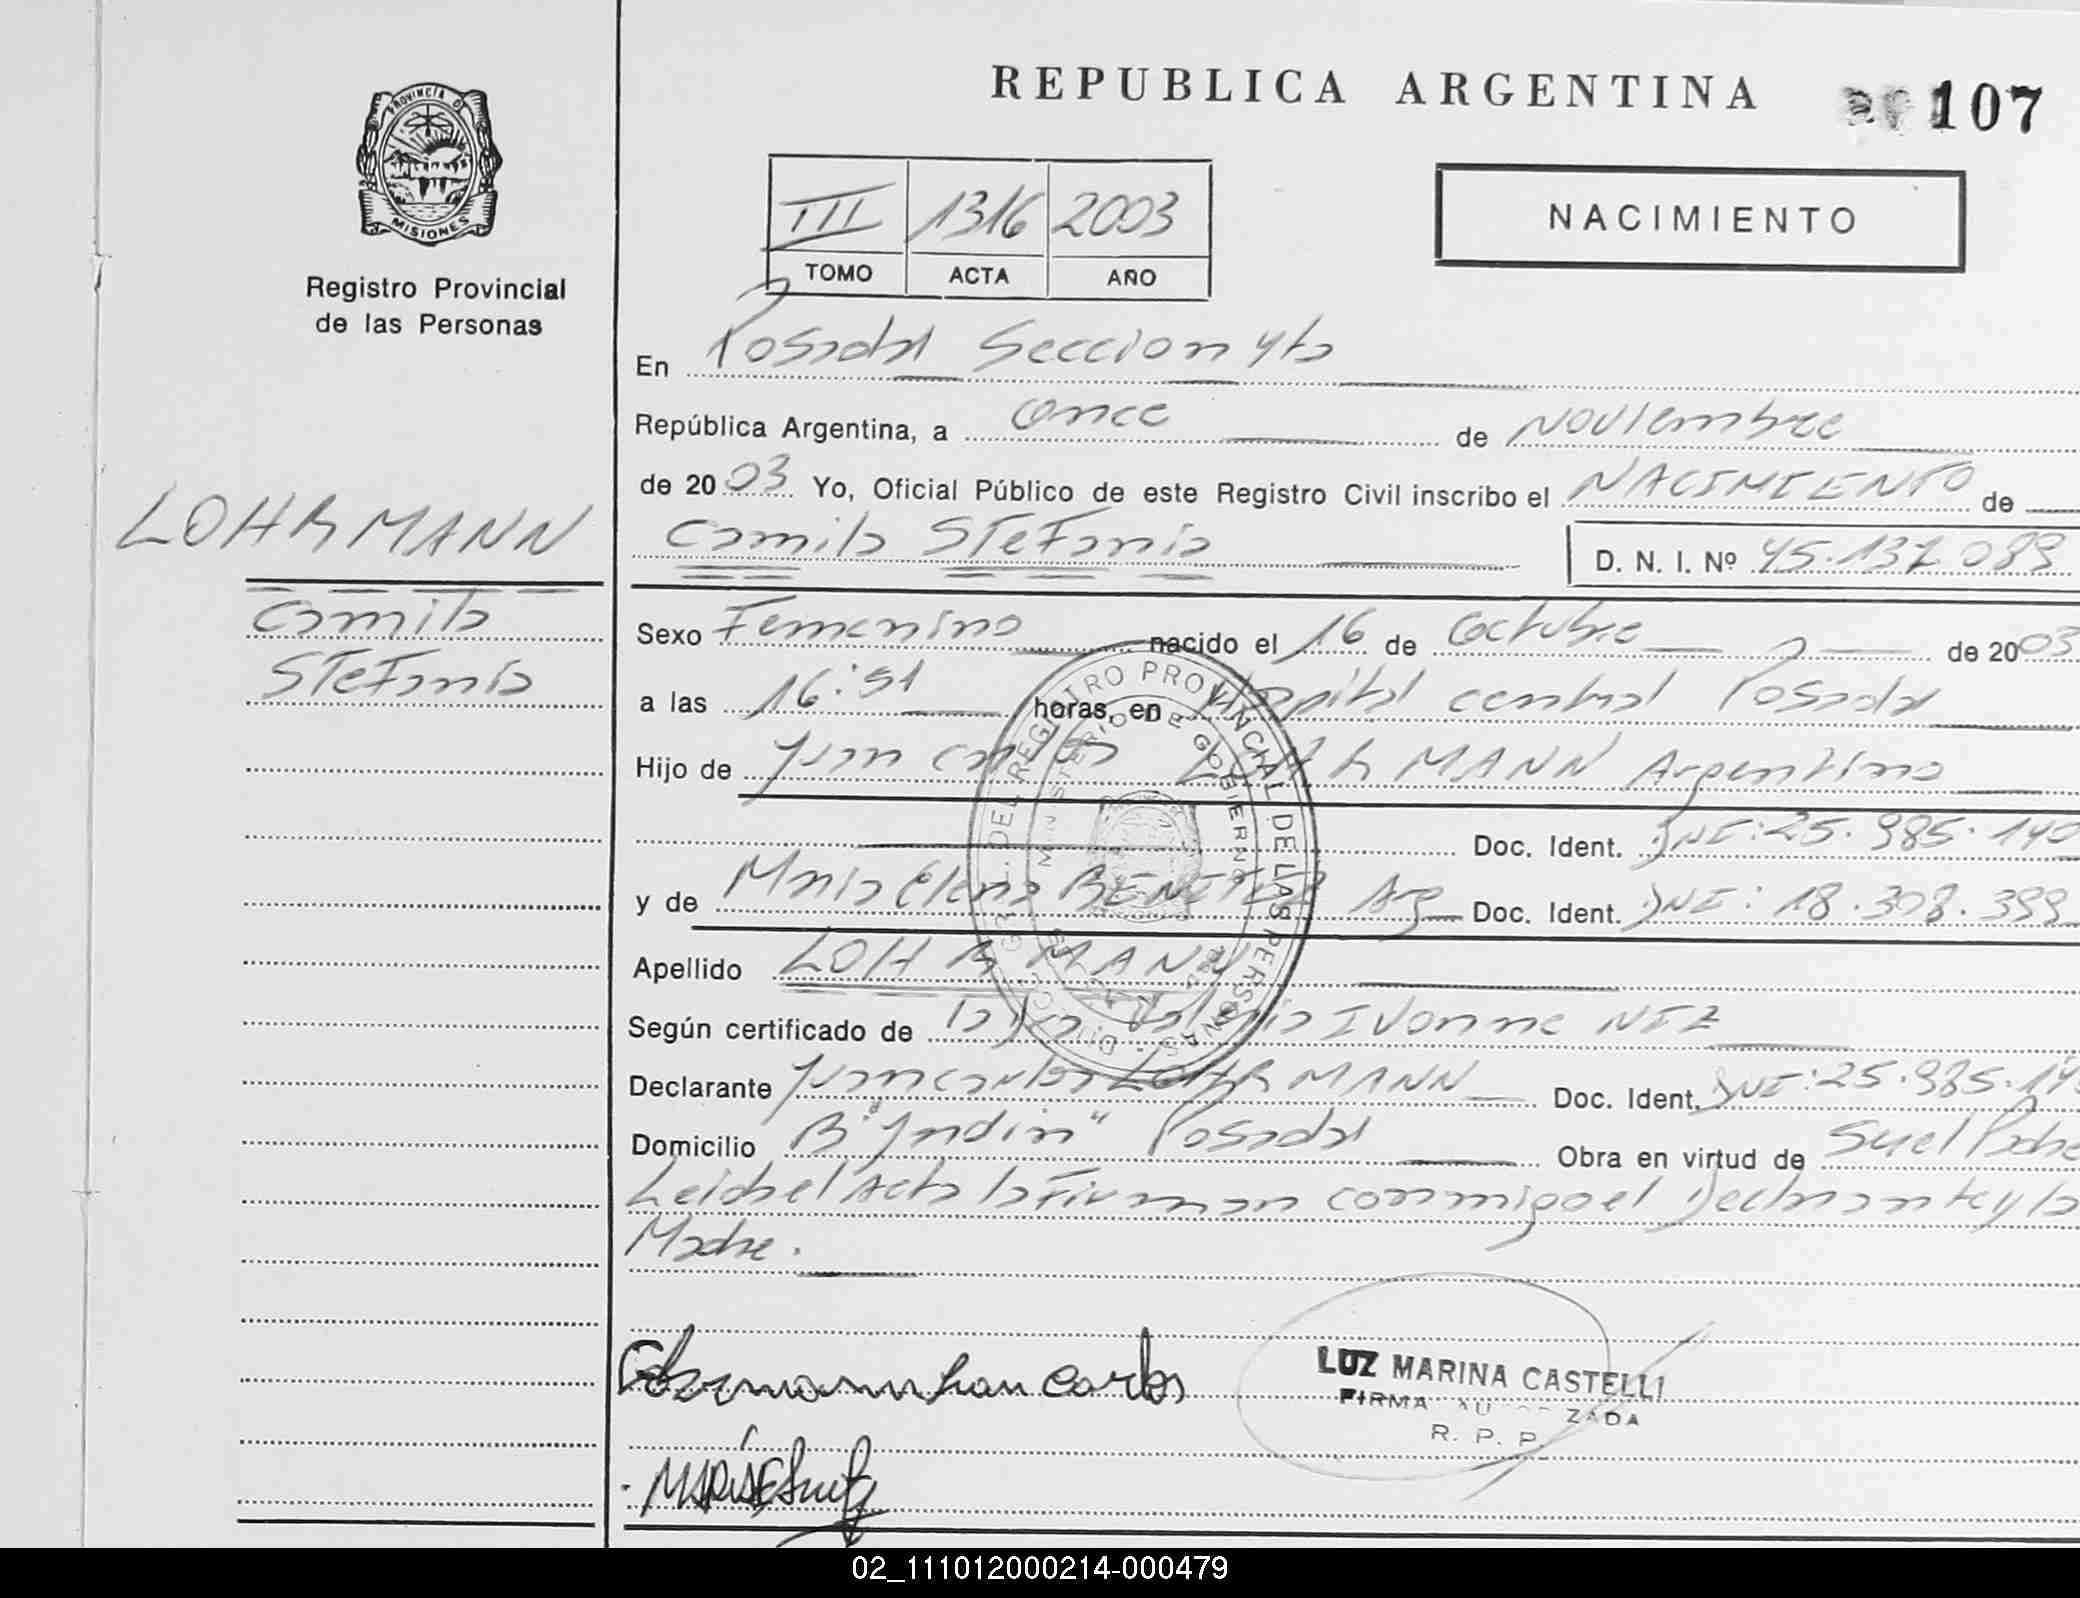 REPUBLICA ARGENTINA
107
PROVINCIA D
MISIONES
Registro Provincial
de las Personas
III 1316 2003
TOMO ACTA AÑO
NACIMIENTO
En Posadas Seccion 4ta
República Argentina, a once de Noviembre
de 2003 Yo, Oficial Público de este Registro Civil inscribo el NACIMIENTO de
Camila STeFania
D. N. I. Nº
LOHRMANN
Camila
STeFania
Sexo Femenino nacido el 16 de Octubre de 2003
a las 16:51 horas, en Hospital central Posadas
Hijo de Juan Carlos LOHRMANN Argentino
Doc. Ident. DNI: 25.985.140
y de Maria Elena BENITEZ Arg Doc. Ident. DNI: 18.308.399
Apellido LOHRMANN
Según certificado de la Ivonne NIZ
Declarante Juan Carlos LOHRMANN Doc. Ident. DNI: 25.985.14
Domicilio B° Posadas Obra en virtud de Ser el Padre
Leida el Acta la Firman conmigo el Declarante y la
Madre.
DIRECC. GRAL. DEL REGISTRO PROVINCIAL DE LAS PERSONAS
MINISTERIO DE GOBIERNO
Juan Carlos
LUZ MARINA CASTELLI
FIRMA AUTORIZADA
R. P. P.
02_111012000214-000479